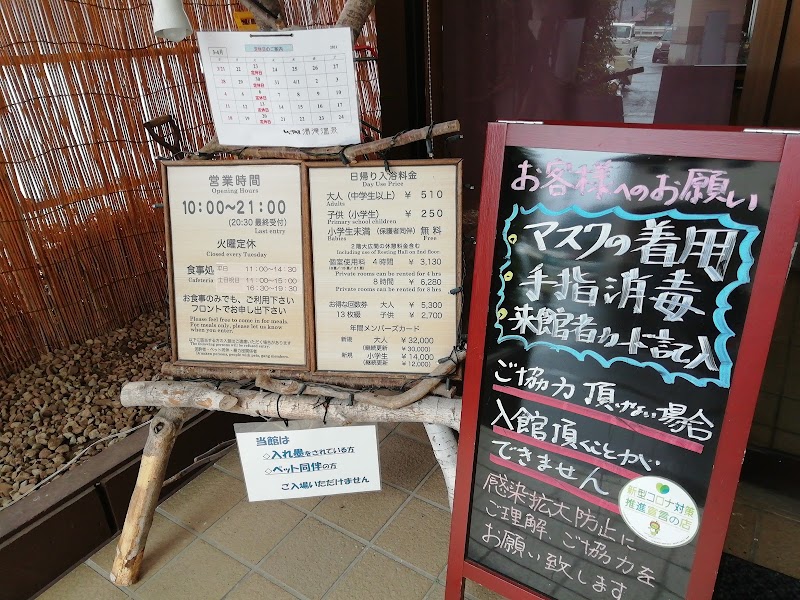 営業時間
Opening Hours
10:00~21:00
(20:30 最終受付)
Last entry
火曜定休
Closed every Tuesday
食事処 平日 11:00~14:30
Cafeteria 土日祝日 11:00~15:00
16:30~19:30
お食事のみでも、ご利用下さい
フロントでお申し出下さい
Please feel free to come in for meals.
For meals only, please let us know
when you enter.
日帰り入浴料金
Day Use Price
大人(中学生以上) ¥ 510
Adults
子供(小学生) ¥ 250
Primary school children
小学生未満(保護者同伴) 無料
Babies Free
2階大広間の休憩料金含む
Including use of Resting Hall on 2nd floor
個室使用料 4時間 ¥ 3,130
Private rooms can be rented for 4 hrs
8時間 ¥ 6,280
Private rooms can be rented for 8 hrs
お得な回数券 大人 ¥ 5,300
13枚綴 子供 ¥ 2,700
年間メンバーズカード
新規 大人 ¥ 32,000
(継続更新 ¥ 30,000)
新規 小学生 ¥ 14,000
(継続更新 ¥ 12,000)
当館は
◇入れ墨をされている方
◇ペット同伴の方
ご入場いただけません
お客様へのお願い
マスクの着用
手指消毒
来館者カード記入
ご協力頂けない場合
入館頂くことが
できません
感染拡大防止に
ご理解、ご協力を
お願い致します
新型コロナ対策
推進宣言の店